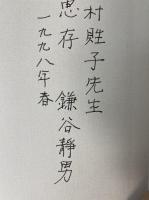 村甡子先生
惠存 鎌谷静男
一九九八年春